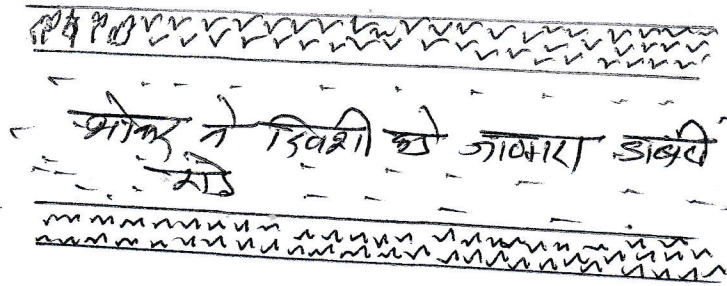 भोकर ते दिवशी जाणारा डांबरी
रोड